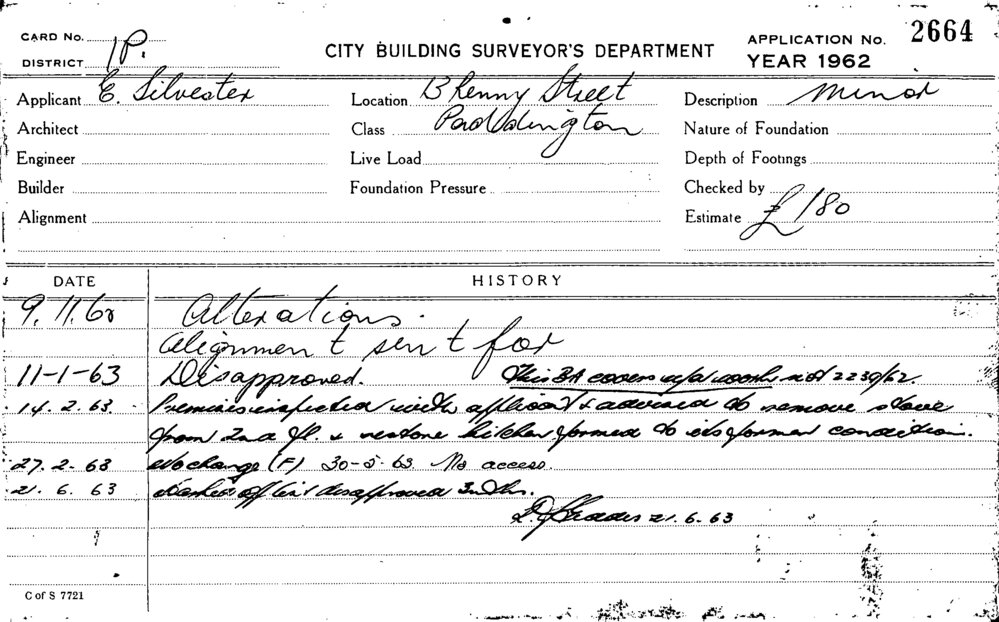 CARD No.
DISTRICT 1P.
CITY BUILDING SURVEYOR'S DEPARTMENT
APPLICATION No. 2664
YEAR 1962
Applicant E. Silvester
Location 13 Renny Street
Description Minor
Architect
Class Paddington
Nature of Foundation
Engineer
Live Load
Depth of Footings
Builder
Foundation Pressure
Checked by
Alignment
Estimate £180
DATE HISTORY
9.11.62 Alterations.
Alignment sent for
11-1-63 Disapproved. This BA covers w/d work not 2230/62.
14.2.63. Premises inspected with applicant & advised to remove stove
from 2nd fl. & restore kitchen formed to its former condition.
27.2.63 No change (F) 30-5-63 No access.
21.6.63 disapproved
21.6.63
C of S 7721